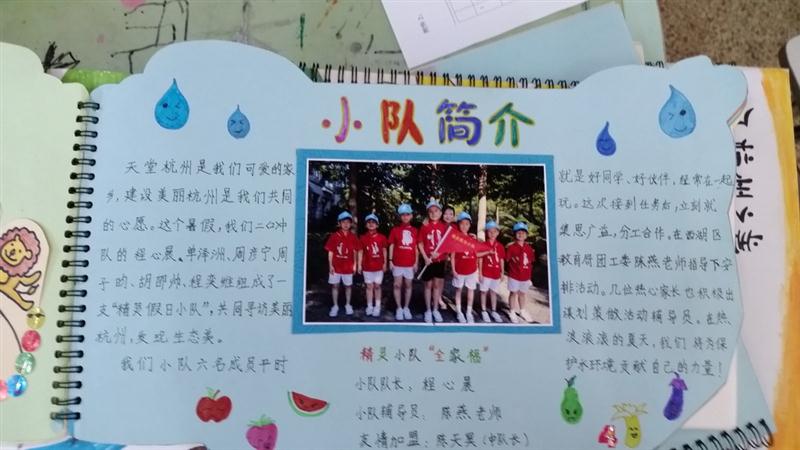 小队简介
天堂杭州是我们可爱的家
乡，建设美丽杭州是我们共同
的心愿。这个暑假，我们二口中
队的程心晨、单泽洲、周彦宁、周
子昀、胡邵帅、程奕姗组成了一
支“精灵假日小队”，共同寻访美丽
杭州，发现生态美。
我们小队六名成员平时
就是好同学、好伙伴，经常在一起
玩。这次接到任务后，立刻就
集思广益，分工合作。在西湖区
教育局团工委陈燕老师指导下安
排活动。几位热心家长也积极出
谋划策做活动辅导员。在热
浪滚滚的夏天，我们将为保
护水环境贡献自己的力量！
精灵小队“全家福”
小队队长：程心晨
小队辅导员：陈燕老师
友情加盟：陈天昊（中队长）